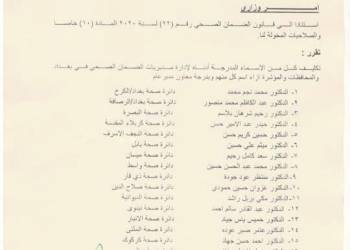 امـــر وزاري
استنادا الى قانون الضمان الصحي رقم (٢٢) لسنة ٢٠٢٠ المادة (١٠) خامسا
والصلاحيات المخولة لنا.
تقرر :
تكليف كل من الاسماء المدرجة أدناه لإدارة مديريات الضمان الصحي في بغداد
والمحافظات والمؤشرة ازاء اسم كل منهم وبدرجة معاون مدير عام
١- الدكتور محمد نجم محمد دائرة صحة بغداد/الكرخ
٢- الدكتور عبد الكاظم محمد منصور دائرة صحة بغداد/الرصافة
٣- الدكتور رحيم شرهان بلاسم دائرة صحة البصرة
٤- الدكتور حيدر عبد الامير حسن دائرة صحة كربلاء المقدسة
٥- الدكتور حسين كريم حسن دائرة صحة النجف الاشرف
٦- الدكتور ميثم علي حسين دائرة صحة بابل
٧- الدكتور سعد كامل رحيم دائرة صحة ميسان
٨- الدكتور محمد عبد الحسن حسين دائرة صحة واسط
٩- الدكتور منتظر عود جودة دائرة صحة ذي قار
١٠- الدكتور غزوان حسين حمودي دائرة صحة صلاح الدين
١١- الدكتور مكي بربل راشد دائرة صحة الديوانية
١٢- الدكتور عبد القادر سالم احمد دائرة صحة نينوى
١٣- الدكتور خميس ياس جياد دائرة صحة الانبار
١٤- الدكتور عناصر صبر عودة دائرة صحة المثنى
١٥- الدكتور احمد حسن جهاد دائرة صحة كركوك